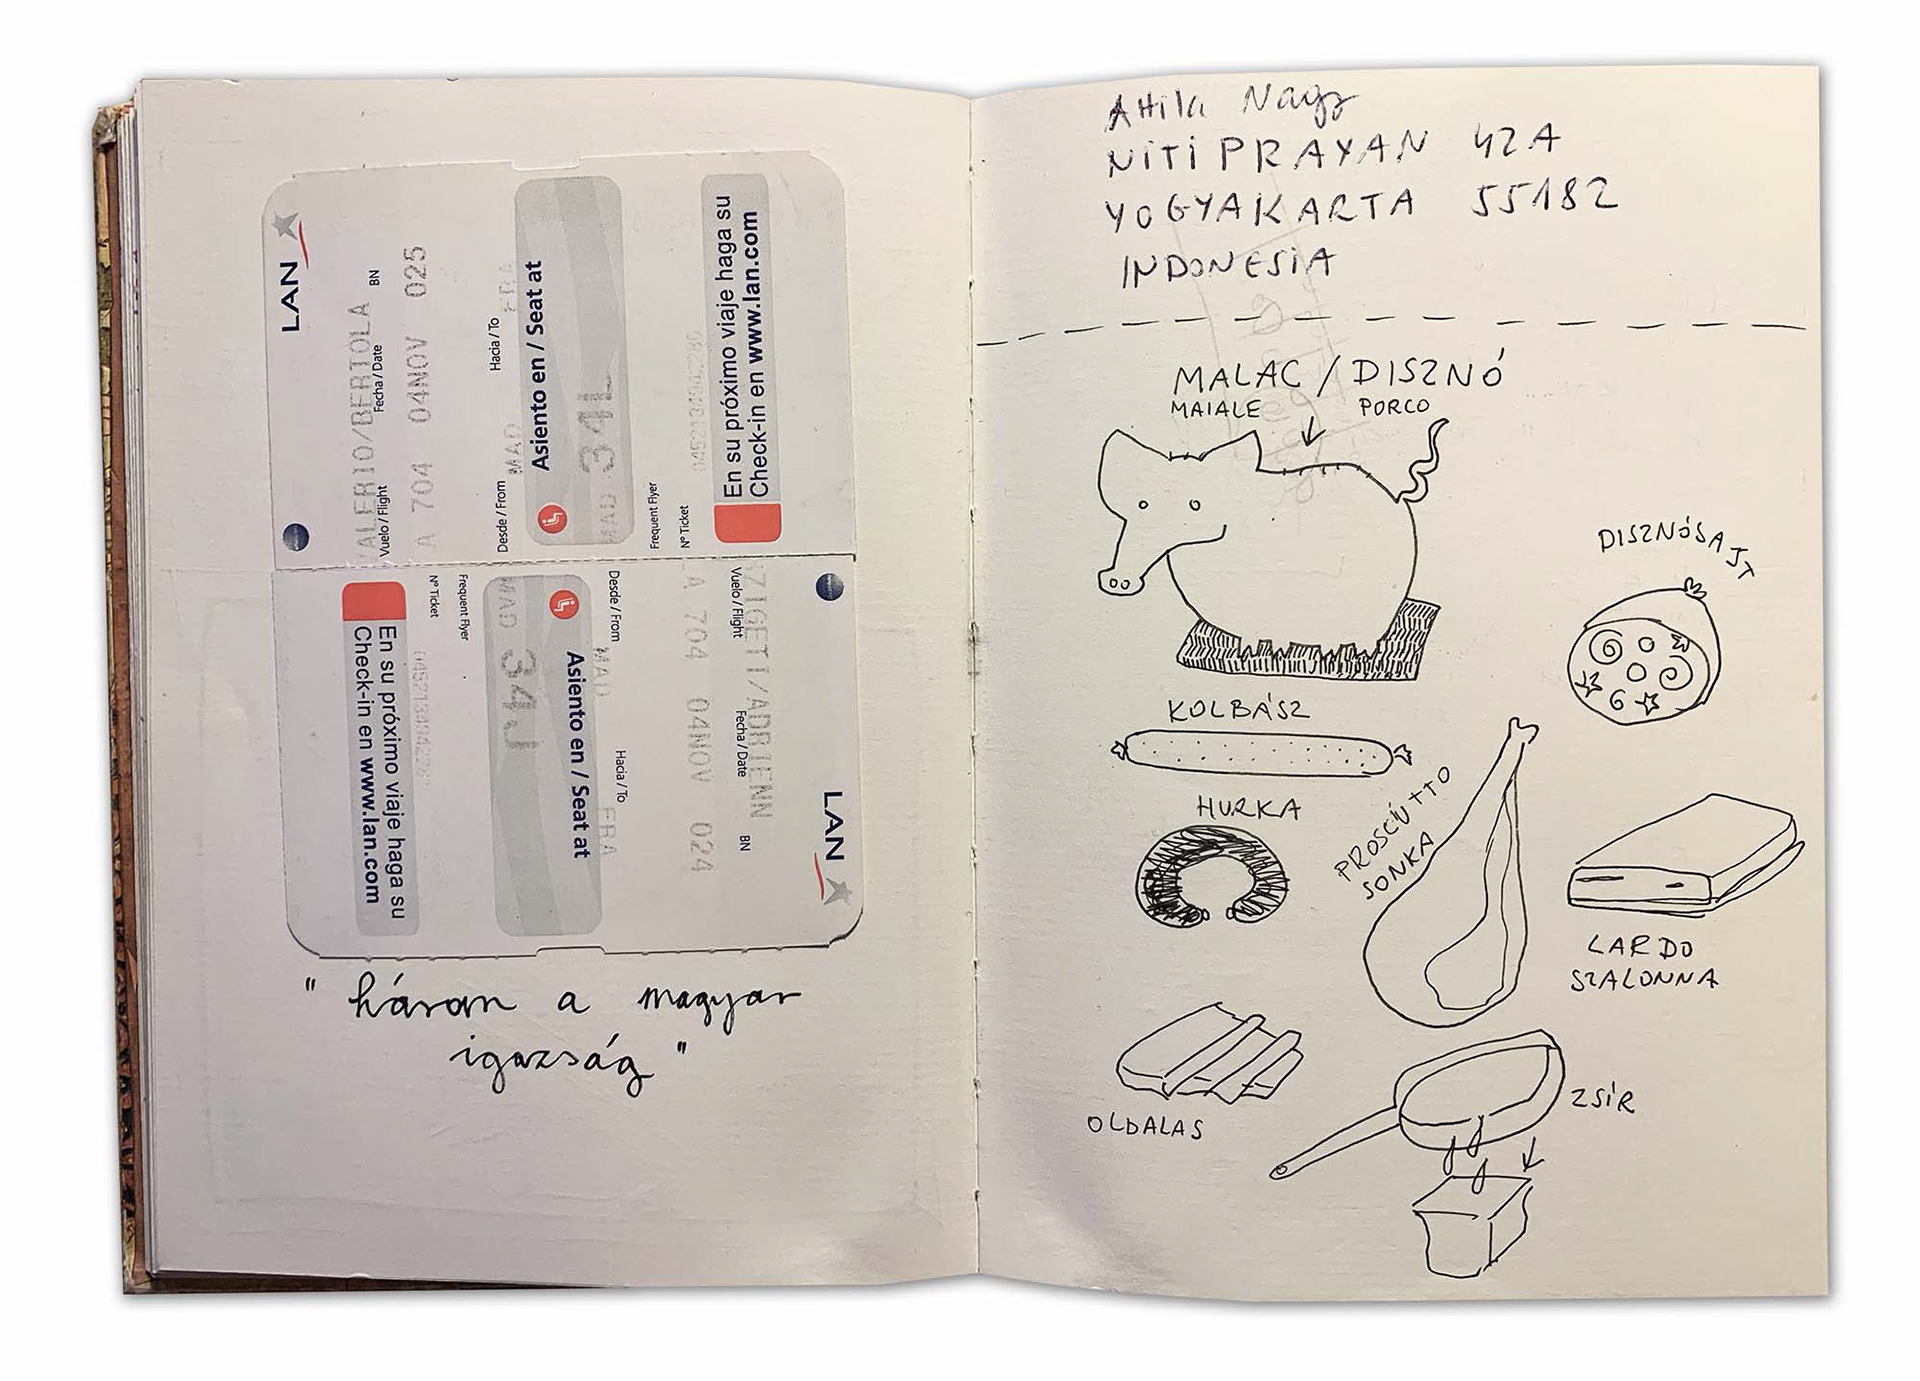 LAN
VALERIO/BERTOLA
Vuelo / Flight Fecha / Date BN
A 704 04NOV 025
Desde / From Hacia / To
MAD FRA
Asiento en / Seat at
MAD 34L
Frequent Flyer
Nº Ticket
En su próximo viaje haga su
Check-in en www.lan.com
LAN
ZIGETI/ADRIENN
Vuelo / Flight Fecha / Date BN
A 704 04NOV 024
Desde / From Hacia / To
MAD FRA
Asiento en / Seat at
MAD 34J
Frequent Flyer
Nº Ticket
En su próximo viaje haga su
Check-in en www.lan.com
" három a magyar
igazság "
Attila Nagy
NITIPRAYAN 42A
YOGYAKARTA 55182
INDONESIA
MALAC / DISZNÓ
MAIALE PORCO
DISZNÓSAJT
KOLBÁSZ
HURKA
PROSCIUTTO
SONKA
LARDO
SZALONNA
OLDALAS
ZSÍR